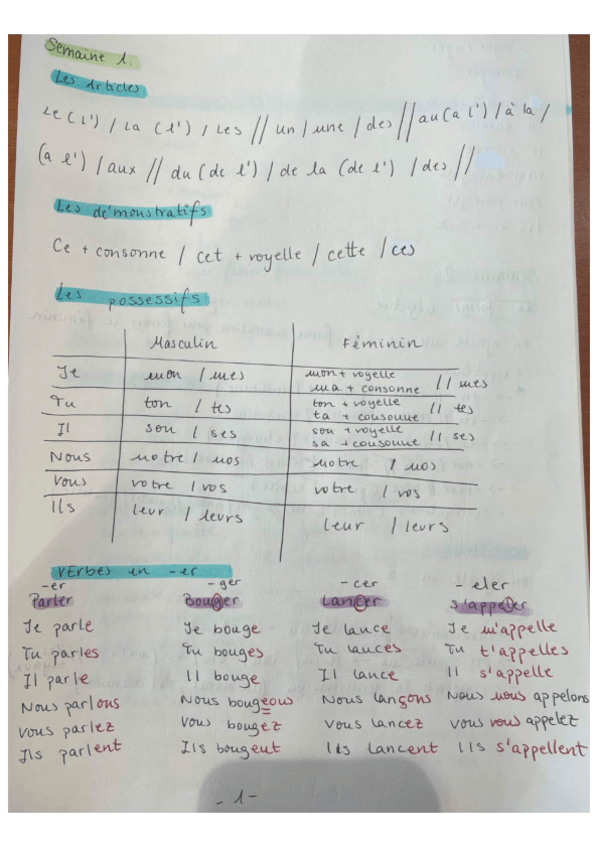 Semaine 1.
Les Articles
Le (L') / La (l') / Les // un / une / des // au (a l') / à la /
(a l') / aux // du (de l') / de la (de l') / des //
Les démonstratifs
Ce + consonne / cet + voyelle / cette / ces
Les possessifs
Masculin Féminin
Je mon / mes mon + voyelle
ma + consonne // mes
Tu ton / tes ton + voyelle
ta + consonne // tes
Il son / ses son + voyelle
sa + consonne // ses
Nous notre / nos notre / nos
Vous votre / vos votre / vos
Ils leur / leurs leur / leurs
Verbes en -er
-er -ger -cer -eler
Parler Bouger Lancer s'appeler
Je parle Je bouge Je lance Je m'appelle
Tu parles Tu bouges Tu lances Tu t'appelles
Il parle Il bouge Il lance Il s'appelle
Nous parlons Nous bougeons Nous lançons Nous nous appelons
Vous parlez Vous bougez Vous lancez Vous vous appelez
Ils parlent Ils bougent Ils lancent Ils s'appellent
- 1 -